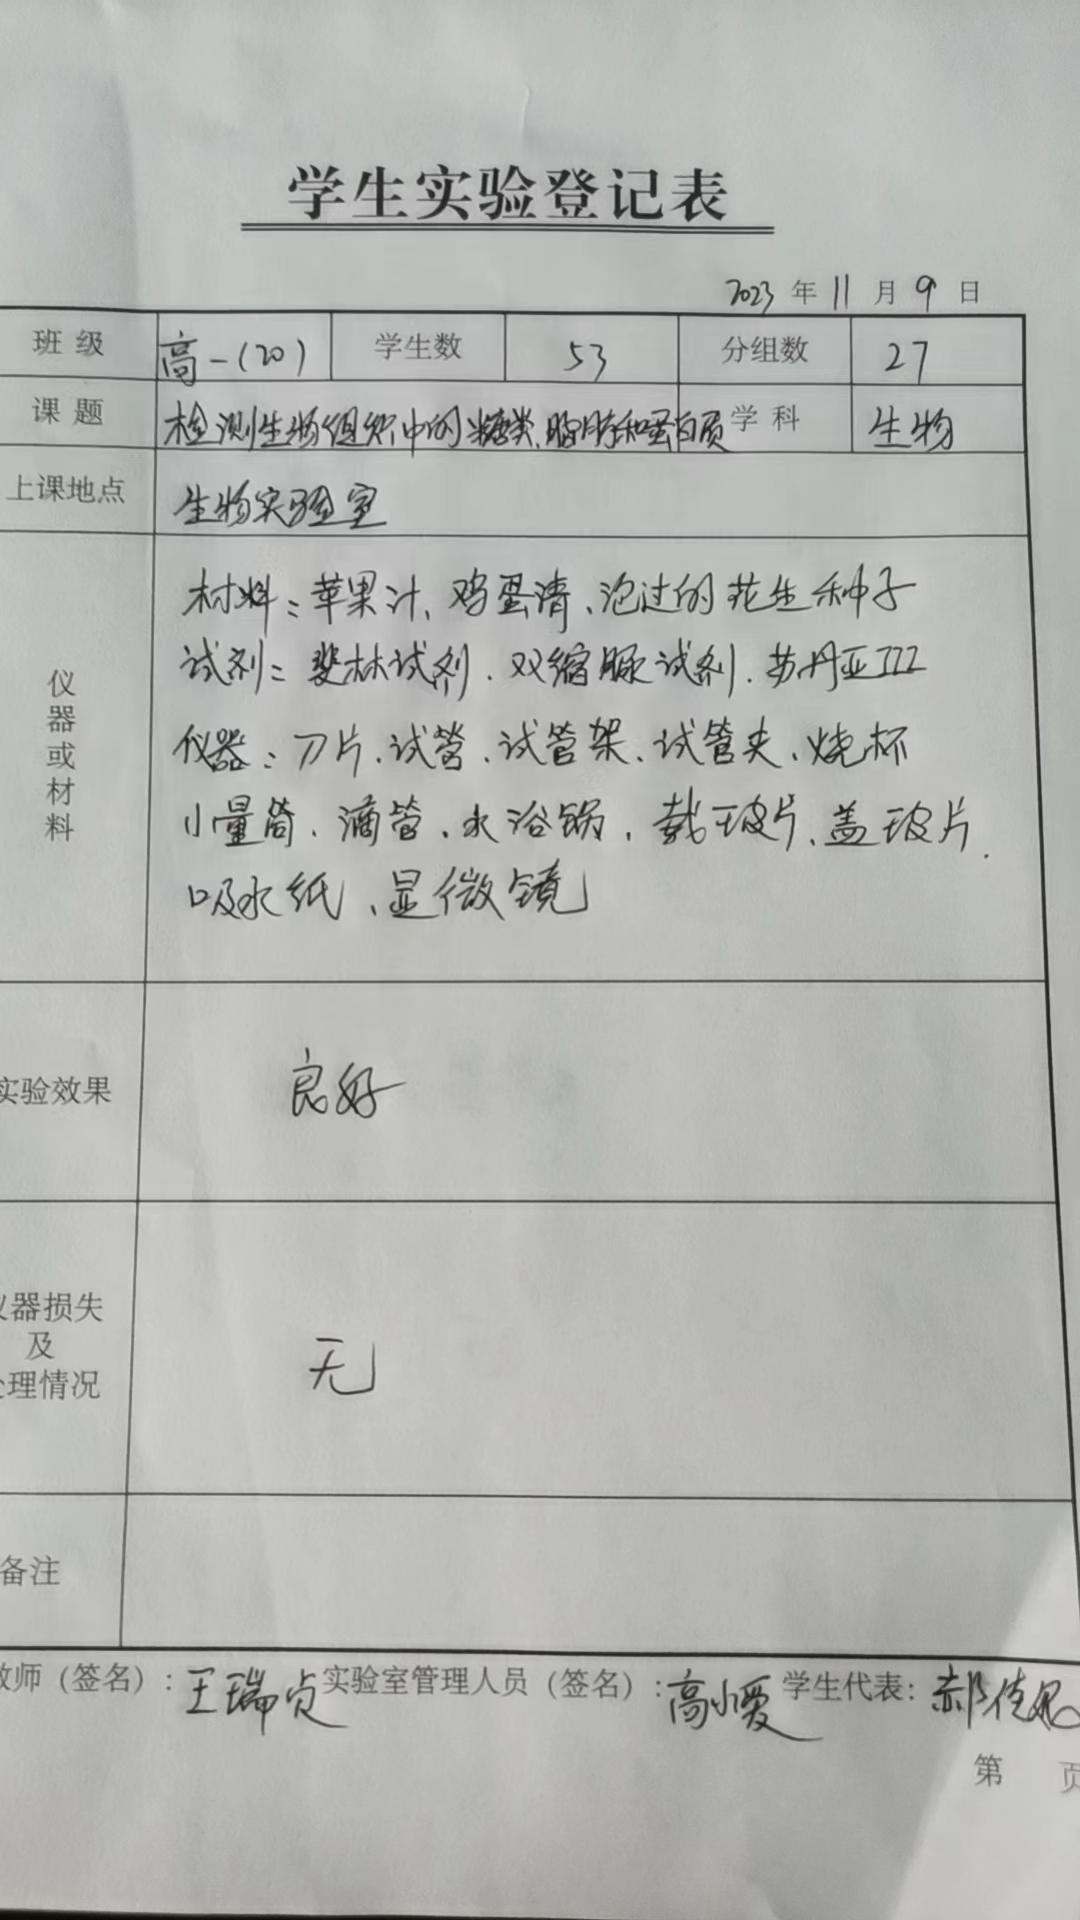 学生实验登记表
2023 年 11 月 9 日
班 级 高一(20) 学生数 53 分组数 27
课 题 检测生物组织中的糖类、脂肪和蛋白质 学 科 生物
上课地点 生物实验室
仪器或材料
材料：苹果汁、鸡蛋清、泡过的花生种子
试剂：斐林试剂、双缩脲试剂、苏丹亚III
仪器：刀片、试管、试管架、试管夹、烧杯
小量筒、滴管、水浴锅、载玻片、盖玻片、
吸水纸、显微镜
实验效果 良好
仪器损失
及
处理情况
无
备注
教师（签名）：王瑞贞 实验室管理人员（签名）：高小爱 学生代表：郝佳
第 页